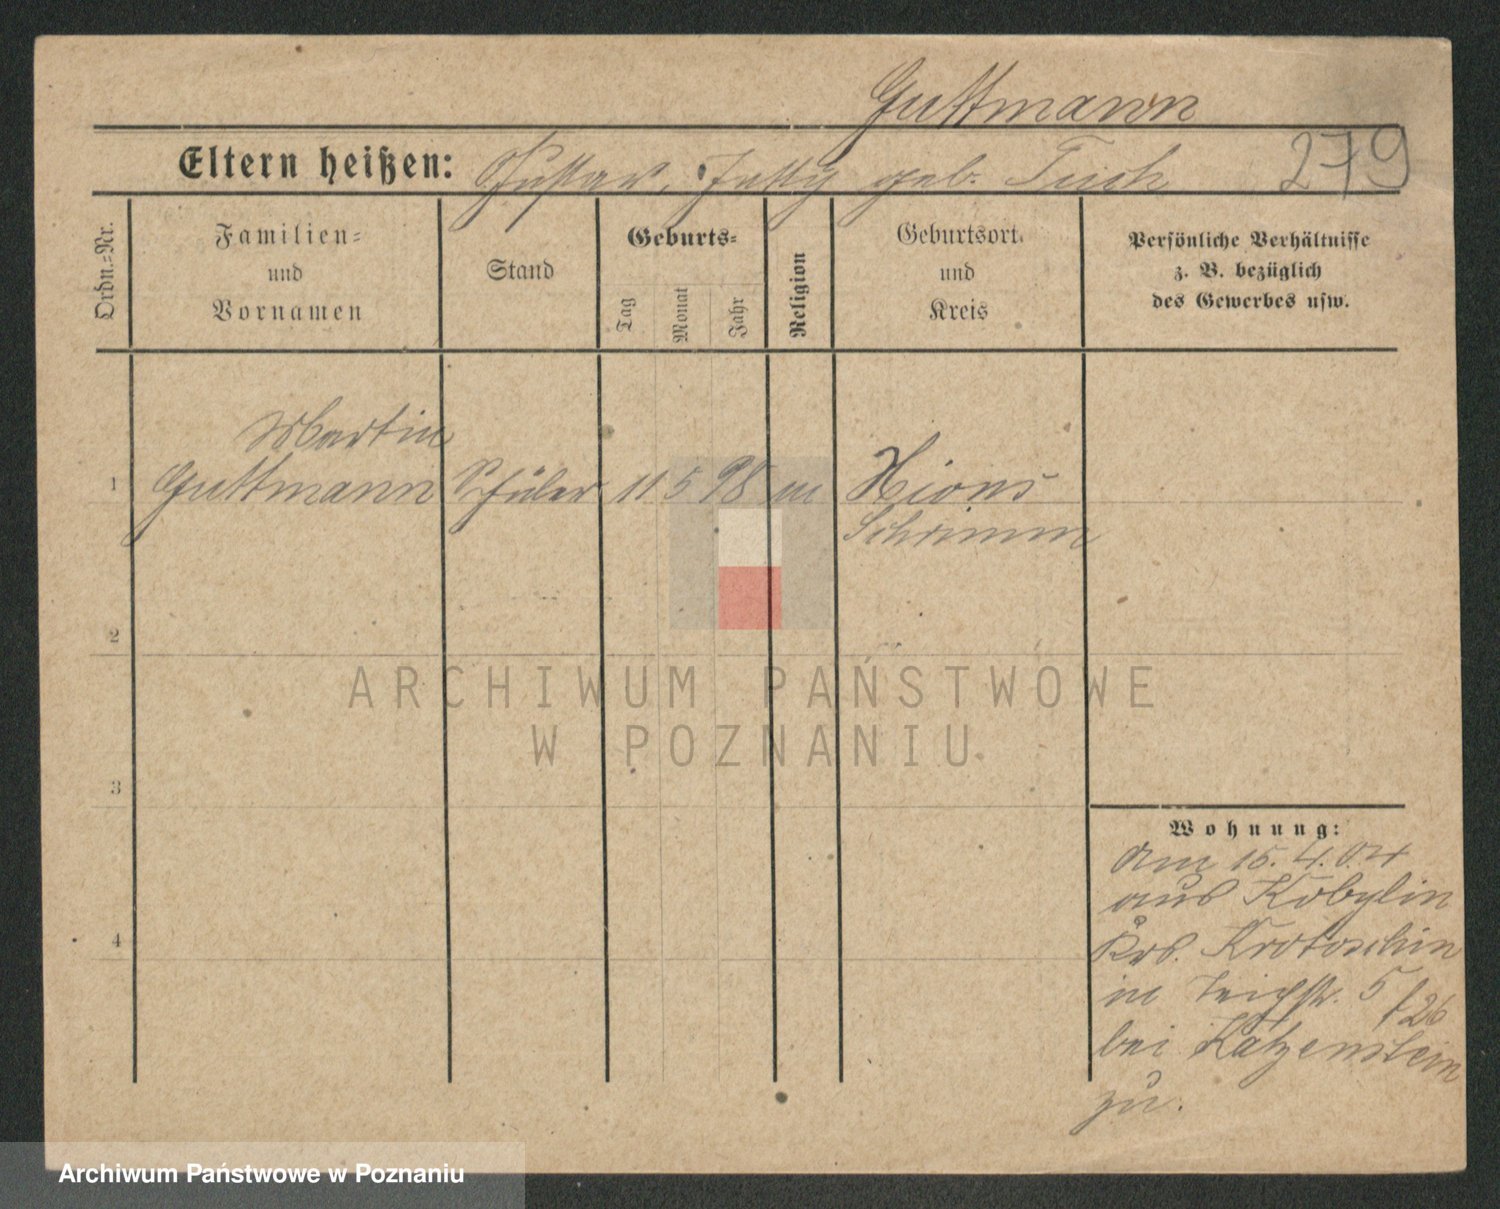 Guttmann
Eltern heißen: Gustav, Jetty geb. Tuch 279
Ordn.-Nr.
Familien-
und
Vornamen
Stand
Geburts-
Tag
Monat
Jahr
Religion
Geburtsort
und
Kreis
Persönliche Verhältnisse
z. B. bezüglich
des Gewerbes usw.
Martin
1 Guttmann Schüler 11 5 98 m Xions
Schrimm
2
ARCHIWUM PAŃSTWOWE
W POZNANIU
3
4
Wohnung:
Am 15.4.04
aus Kobylin
Krs. Krotoschin
in Teichstr. 5
126
bei Katzenstein
zu.
Archiwum Państwowe w Poznaniu